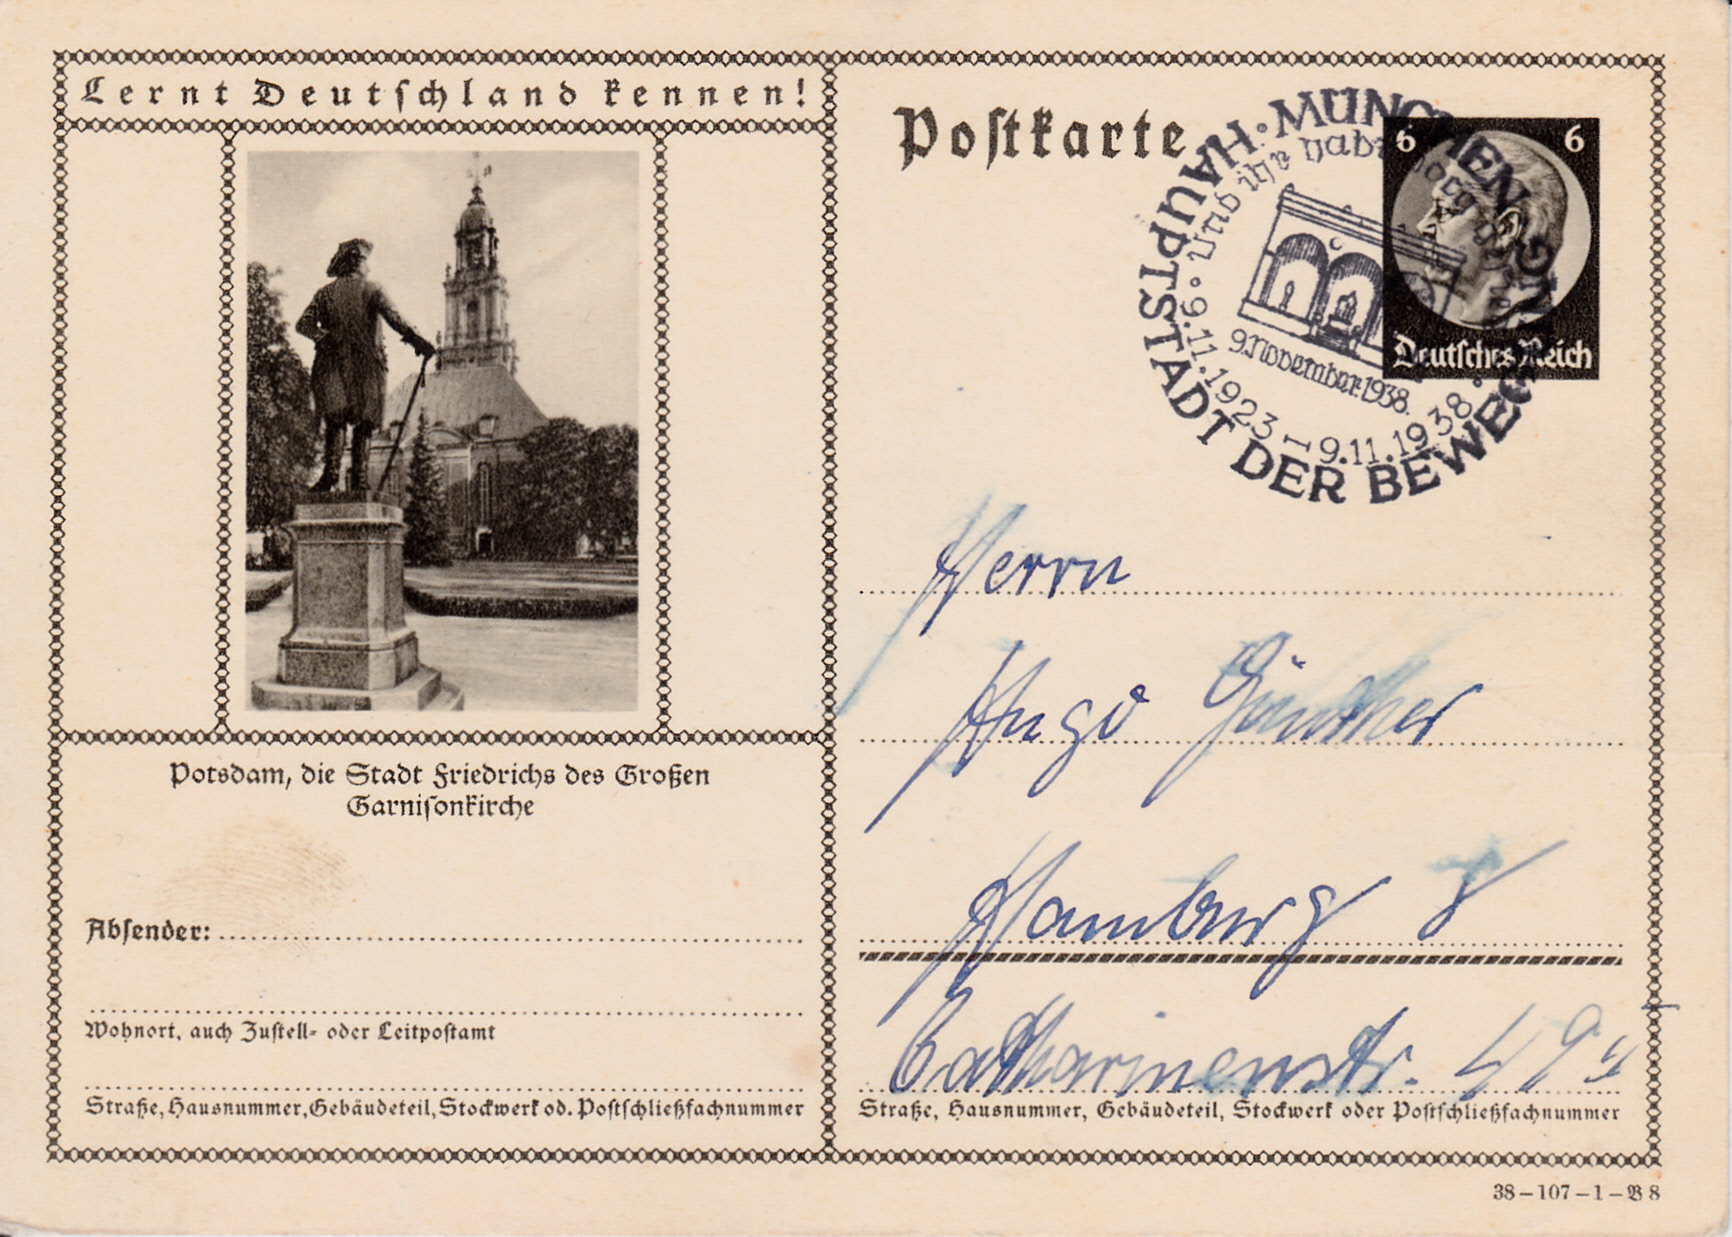 Lernt Deutschland kennen!
Potsdam, die Stadt Friedrichs des Großen
Garnisonkirche
Absender:
Wohnort, auch Zustell- oder Leitpostamt
Straße, Hausnummer, Gebäudeteil, Stockwerk od. Postschließfachnummer
Postkarte
6 6
Deutsches Reich
MÜNCHEN · HAUPTSTADT DER BEWEGUNG
Und ihr habt
9.11.1923 – 9.11.1938
9.November.1938.
Herrn
Hugo Günther
Hamburg 8
Catharinenstr. 49
Straße, Hausnummer, Gebäudeteil, Stockwerk oder Postschließfachnummer
38–107–1–B 8